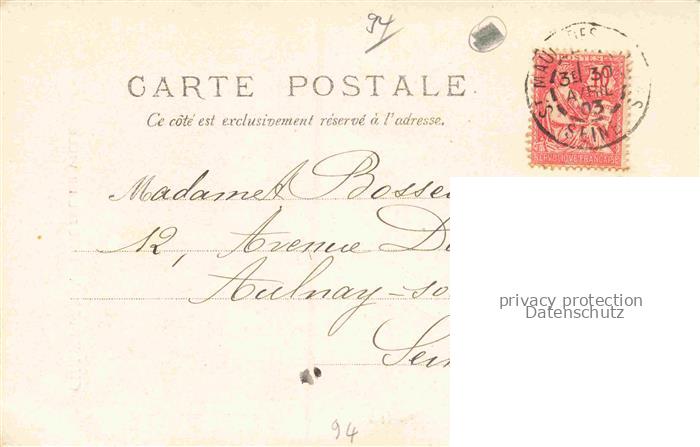 94
CARTE POSTALE
Ce côté est exclusivement réservé à l'adresse.
ST MAUR DES
3E 30
AVRIL
03
SEINE
POSTES
10
REPUBLIQUE FRANÇAISE
Madame A Bosse
12, Avenue D
Aulnay-so
Sein
privacy protection
Datenschutz
94